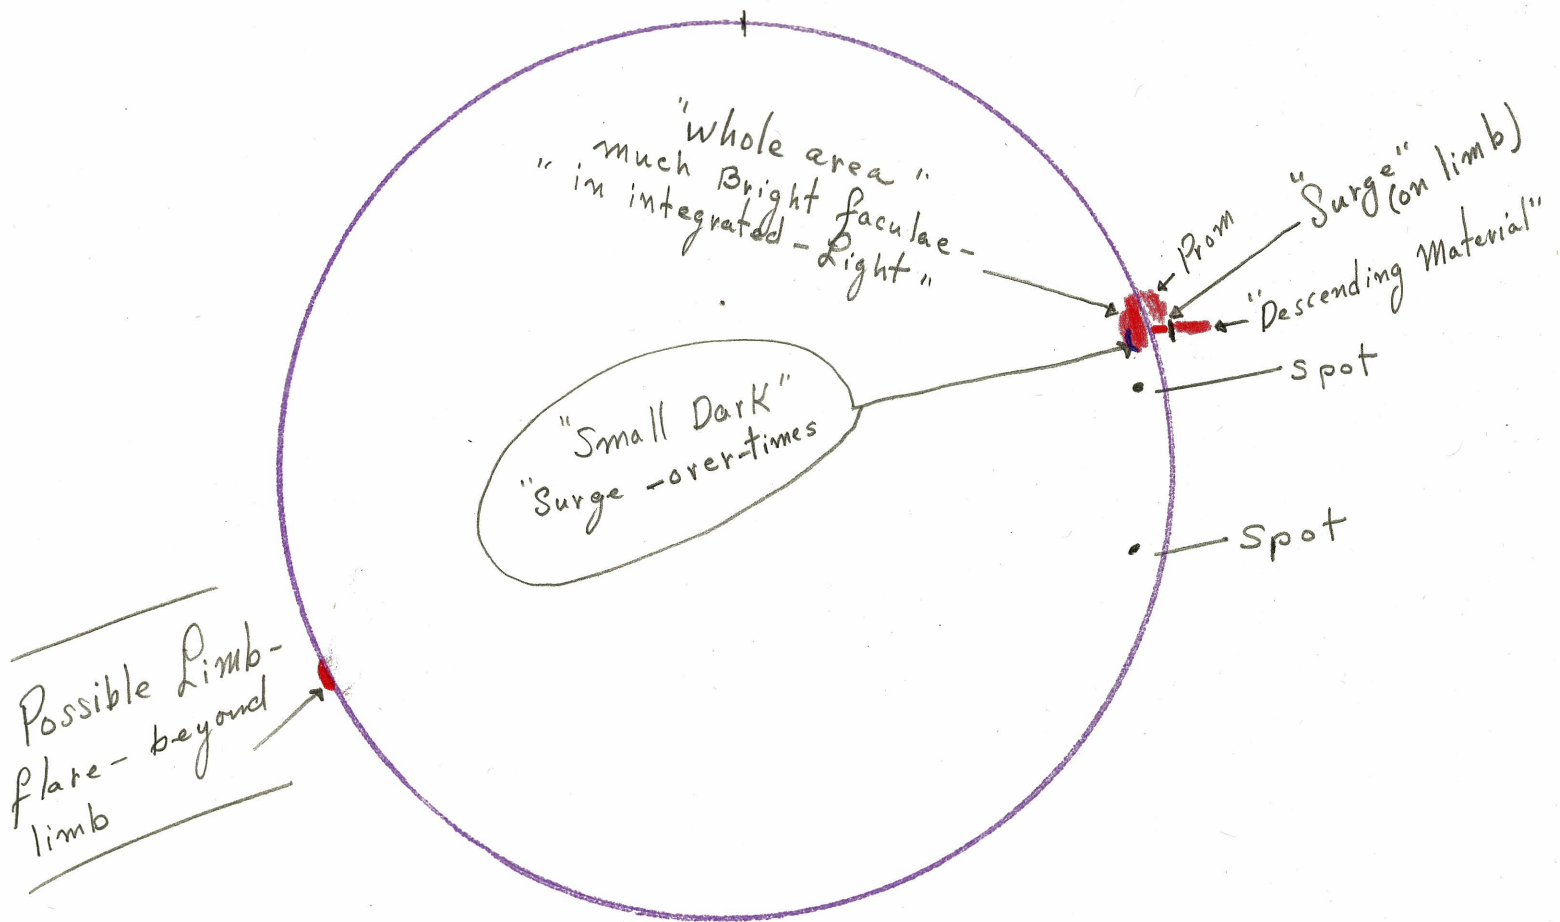 "whole area"
much Bright faculae-
"in integrated-Light"
"Surge"
(on limb)
Prom
"Descending Material"
Spot
"Small Dark"
"Surge -over-times
Spot
Possible Limb-
flare- beyond
limb